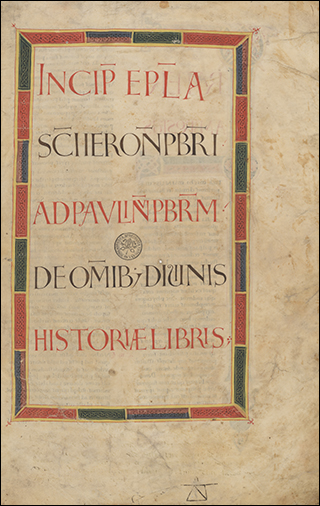 INCIP̄ EP̄LA
SC̄I IERON̄ PB̄RI
AD PAVLIN̄ PB̄RM·
DE OM̄IB; DIUINIS
HISTORIÆ LIBRIS;